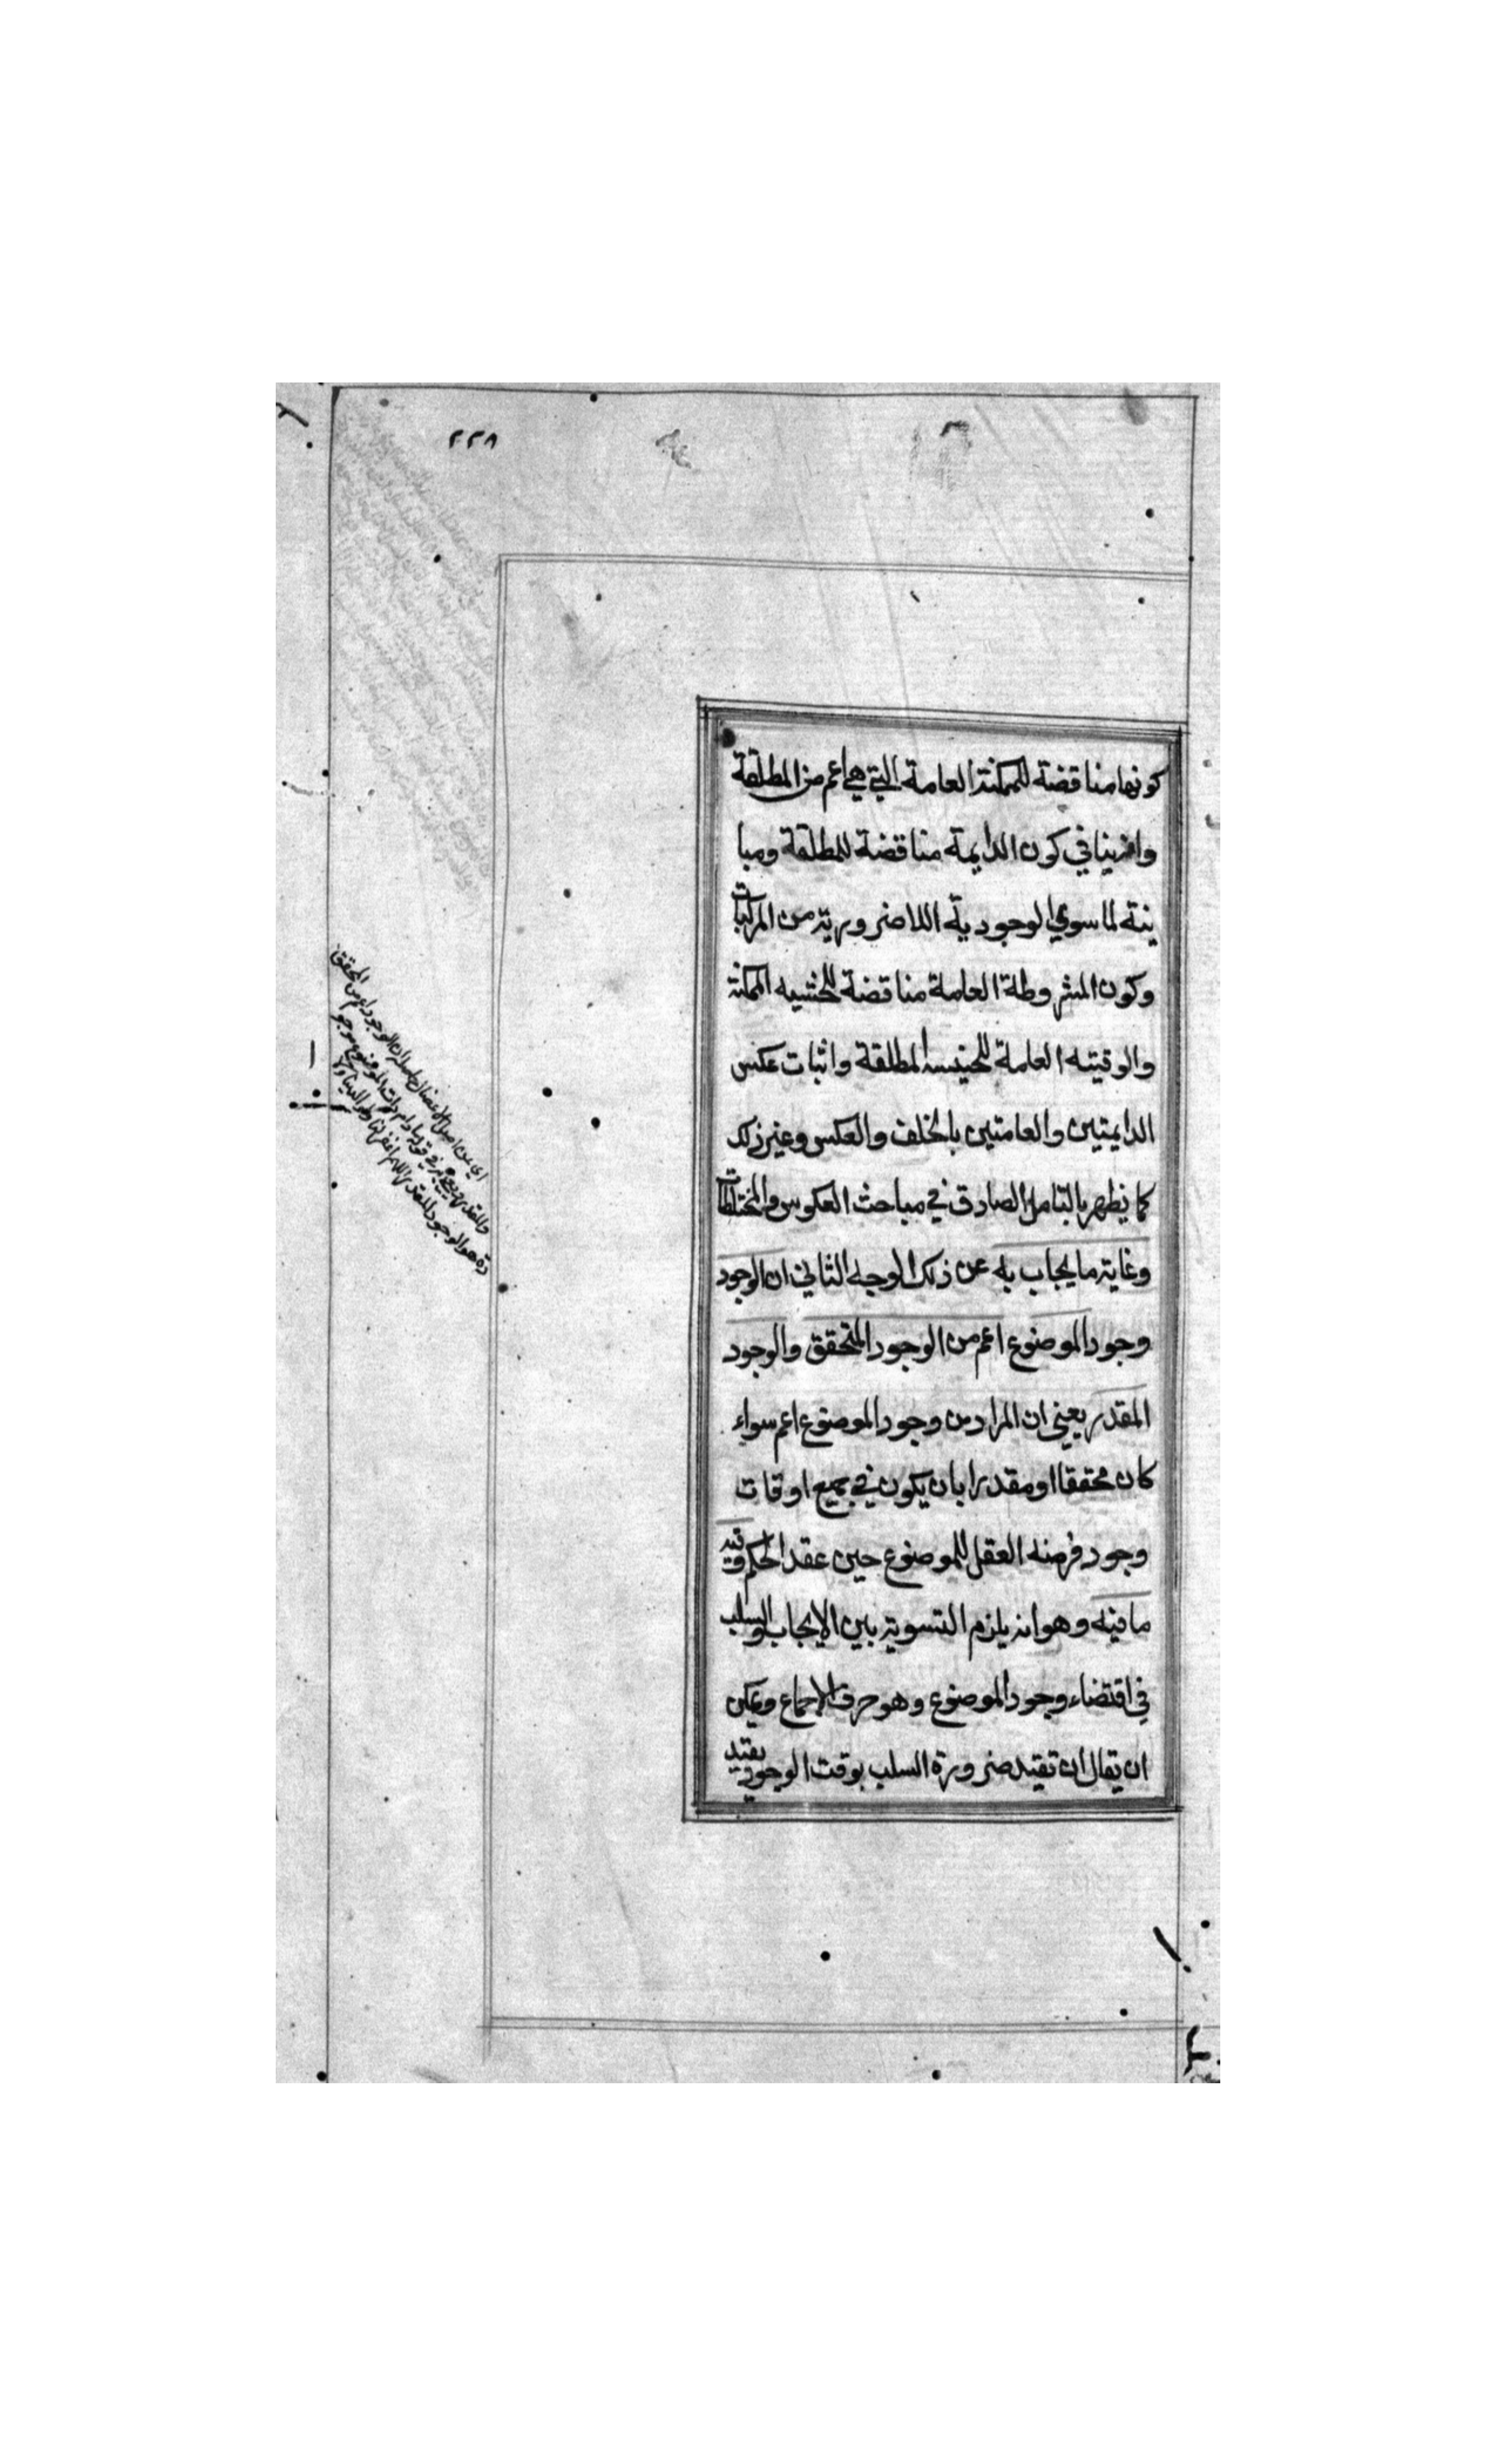 ٢٢٨
كونها مناقضة للممكنة العامة التي هي اعم من المطلقة
وانه ينافي كون الدايمة مناقضة للمطلقة ومبا
ينة لما سوي الوجودية اللاضرورية من المركبات
وكون المشروطة العامة مناقضة للحينيه الممكنة
والوقتيه العامة للحينيه المطلقة واثبات عكس
الدايمتين والعامتين بالخلف والعكس وغير ذلك
كما يظهر بالتامل الصادق في مباحث العكوس والمختلطات
وغاية ما يجاب به عن ذلك الوجه الثاني ان الوجود
وجود الموضوع اعم من الوجود المتحقق والوجود
المقدر يعني ان المراد من وجود الموضوع اعم سواء
كان محققا او مقدرا بان يكون في جميع اوقات
وجود فرضه العقل للموضوع حين عقد الحكم وفيه
ما فيه وهو انه يلزم التسوية بين الايجاب والسلب
في اقتضاء وجود الموضوع وهو خرق الاجماع ويمكن
ان يقال ان تقيد ضرورة السلب بوقت الوجود يفيد